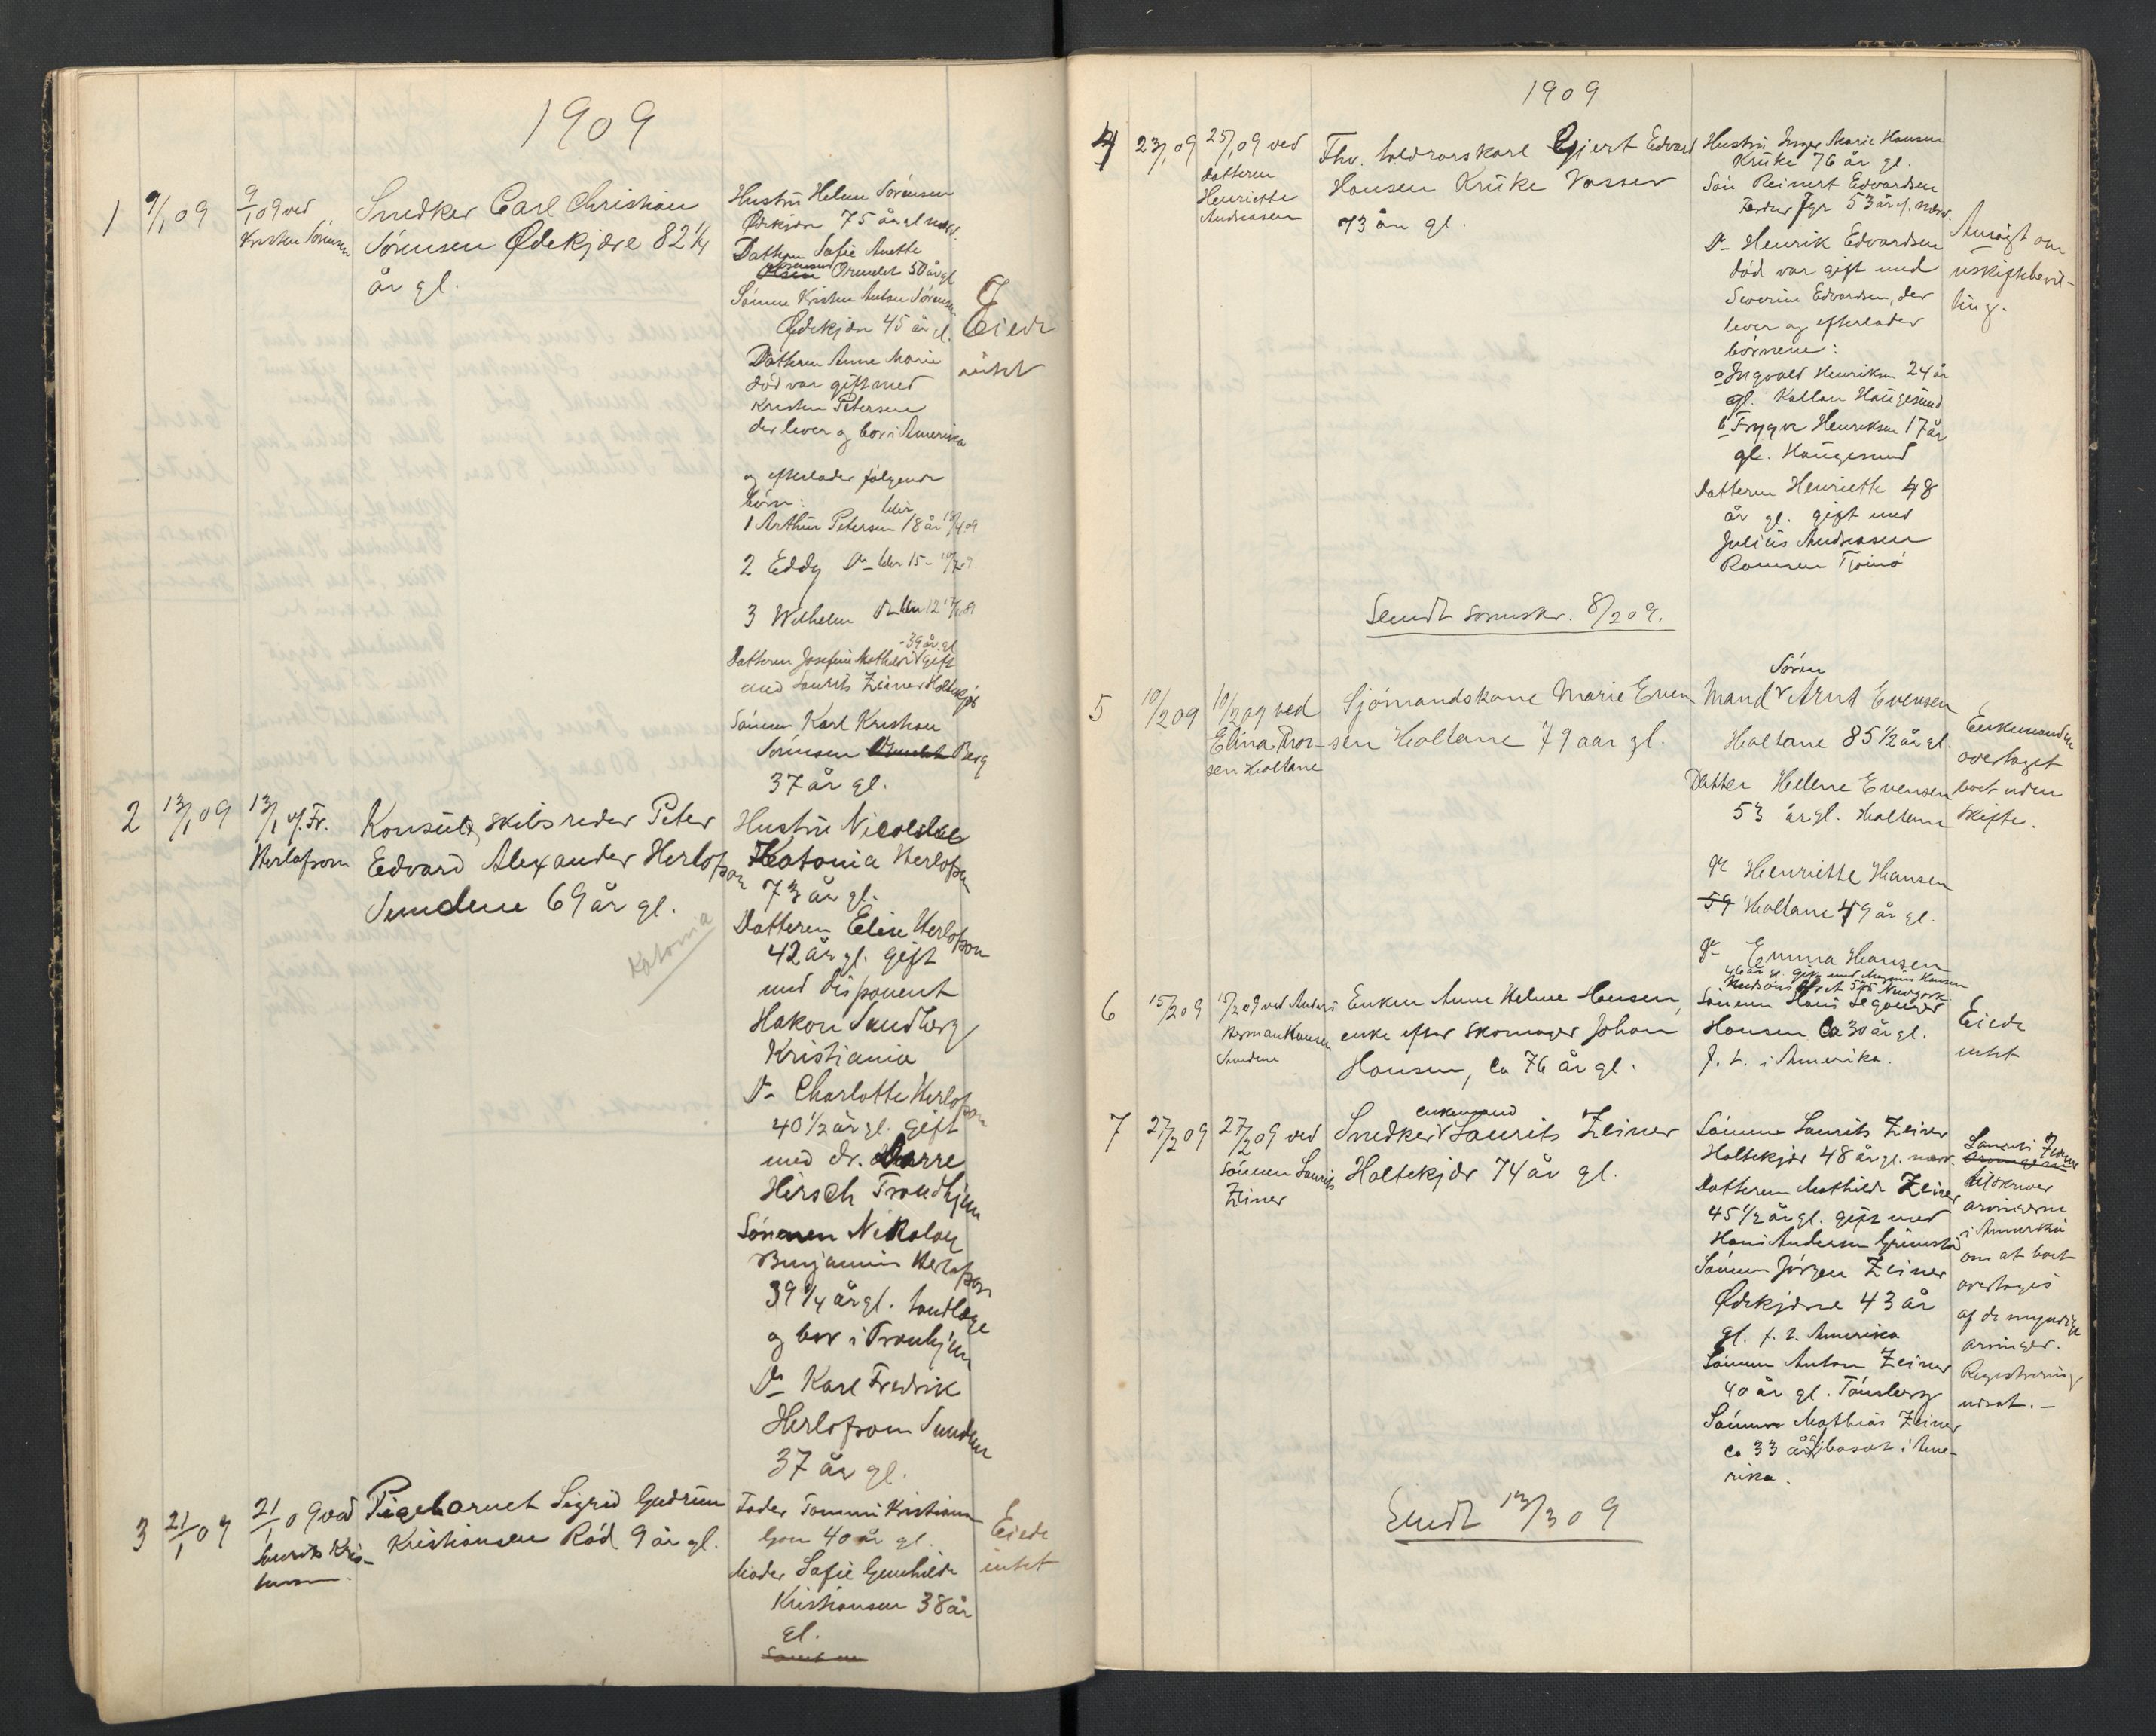 1909
1 9/1 09
9/1 09 ved
Kristen Sörensen
Snedker Carl Christian
Sörensen Ødekjære 82 1/4
år gl.
Hustru Helene Sörensen
Ødekjær 75 år gl nærv.
Datteren Sofie Anette
Ormelet 50 år gl
Sönnen Kristen Anton Sörensen
Ødekjær 45 år gl.
Datteren Anne Marie
död var gift med
Kristen Petersen
der lever og bor i Amerika
og efterlader fölgende
börn:
1 Arthur Petersen 18 år 18/4 09
2 Eddy Do blir 15 -
3 Wilhelm Do blir 12
- 39 år gl
Datteren Josefine Mathilde gift
med Laurits Zeiner Holtekjær
Sönnen Karl Kristian
Sörensen Berg
37 år gl.
Eiede
intet
2 13/1 09
13/1 v/ Fr.
Herlofson
Konsul, skibsreder Peter
Edvard Alexander Herlofson
Smidene 69 år gl.
Katonia
Hustru Nicoline
Katonia Herlofson
73 år gl.
Datteren Elise Herlofson
42 år gl. gift
med disponent
Hakon Sundberg
Kristiania
Do Charlotte Herlofson
40 1/2 år gl. gift
med dr.
Hirsch Trondhjem
Sönnen Nikolay
Benjamin Herlofson
39 1/4 år gl. tandlæge
og bor i Tronhjem
Do Karl Fredrik
Herlofson Smidene
37 år gl.
3 21/1 09
21/1 09 ved
Laurits Kris-
tiansen
Pigebarnet Sigrid Gudrun
Kristiansen Röd 9 år gl.
Fader Tommi Kristian
40 år gl.
Moder Sofie Gunhilde
Kristiansen 38 år
gl.
Eiede
intet
1909
4 23/1 09
25/1 09 ved
datteren
Henriette
Andreassen
Fhv. toldrorskarl Gjert Edvard
Hansen Krüke Vasser
73 år gl.
Hustru Inger Marie Hansen
Krüke 76 år gl.
Sön Reinert Edvardsen
53 år gl. nærv.
Do Henrik Edvardsen
död var gift med
Severine Edvardsen, der
lever og efterlader
börnene:
a Ingvald Henriksen 24 år
gl. Haugesund
b Trygve Henriksen 17 år
gl. Haugesund
Datteren Henriette 48
år gl. gift med
Julius Andreassen
Tjömö
Ansögt om
uskiftebevil-
ling.
Sendt sornskr. 8/2 09.
5 10/2 09
10/2 09 ved
Elina Thor-
sen Holtane
Sjömandskone Marie Even
sen Holtane 79 aar gl.
Sören
Mand v Arnt Evensen
Holtane 85 1/2 år gl.
Datter Helene Evensen
53 år gl. Holtane
Do Henriette Hansen
59 Holtane 49 år gl.
Do Emma Hansen
46 år gl. gift med Magnus Hansen
Newyork
Enkemanden
overtaget
boet uden
skifte.
6 15/2 09
15/2 09 ved Anders
Herman Hansen
Smidene
Enken Anne Helene Hansen,
enke efter skomager Johan
Hansen, ca 76 år gl.
Sönnen Hans
Hansen ca 30 år gl.
f. t. i Amerika.
Eiede
intet
7 27/2 09
27/2 09 ved
sönnen Laurits
Zeiner
enkemand
Snedker v Laurits Zeiner
Holtekjær 74 år gl.
Sönnen Laurits Zeiner
Holtekjær 48 år gl. nærv.
Datteren Mathilde Zeiner
45 1/2 år gl. gift med
Hans Andersen Grimestad
Sönnen Jörgen Zeiner
Ødekjære 43 år
gl. f. t. Amerika
Sönnen Anton Zeiner
40 år gl. Tönsberg
Sönnen Mathias Zeiner
ca 33 år gl bosat i Ame-
rika.
Laurits Zeiner
tilskriver
arvingerne
i Amerika
om at boet
overtages
af de myndige
arvinger.
Registrering
udsat. -
Sendt 13/3 09